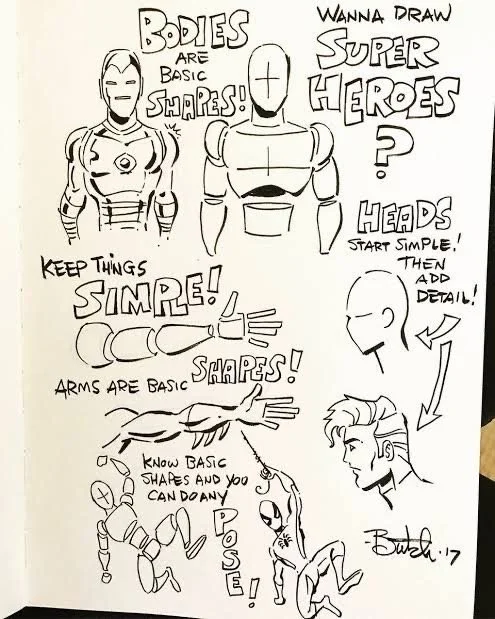 WANNA DRAW
SUPER
HEROES
?
BODIES
ARE
BASIC
SHAPES!
HEADS
START SIMPLE!
THEN
ADD
DETAIL!
KEEP THINGS
SIMPLE!
ARMS ARE BASIC SHAPES!
KNOW BASIC
SHAPES AND YOU
CAN DO ANY
POSE!
Butch '17